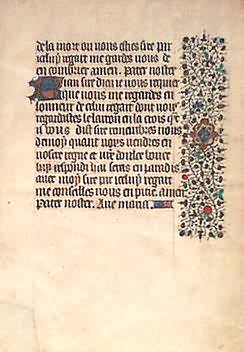 de la mort ou vous estes sire par
icelui regart me gardes vous de
encombrier amen. Pater noster
sire dieu ie vous requier
que vous me regardes en
lonneur de celui regart dont vous
regardastes le larron en la crois qui
vous dist sire remembres vous
de moy quant vous vendres en
vostre regne et
luy respondi hui seras en paradis
avec moy sire par icelui regart
me conseilles vous en pitie. amen
Pater noster. Ave maria.